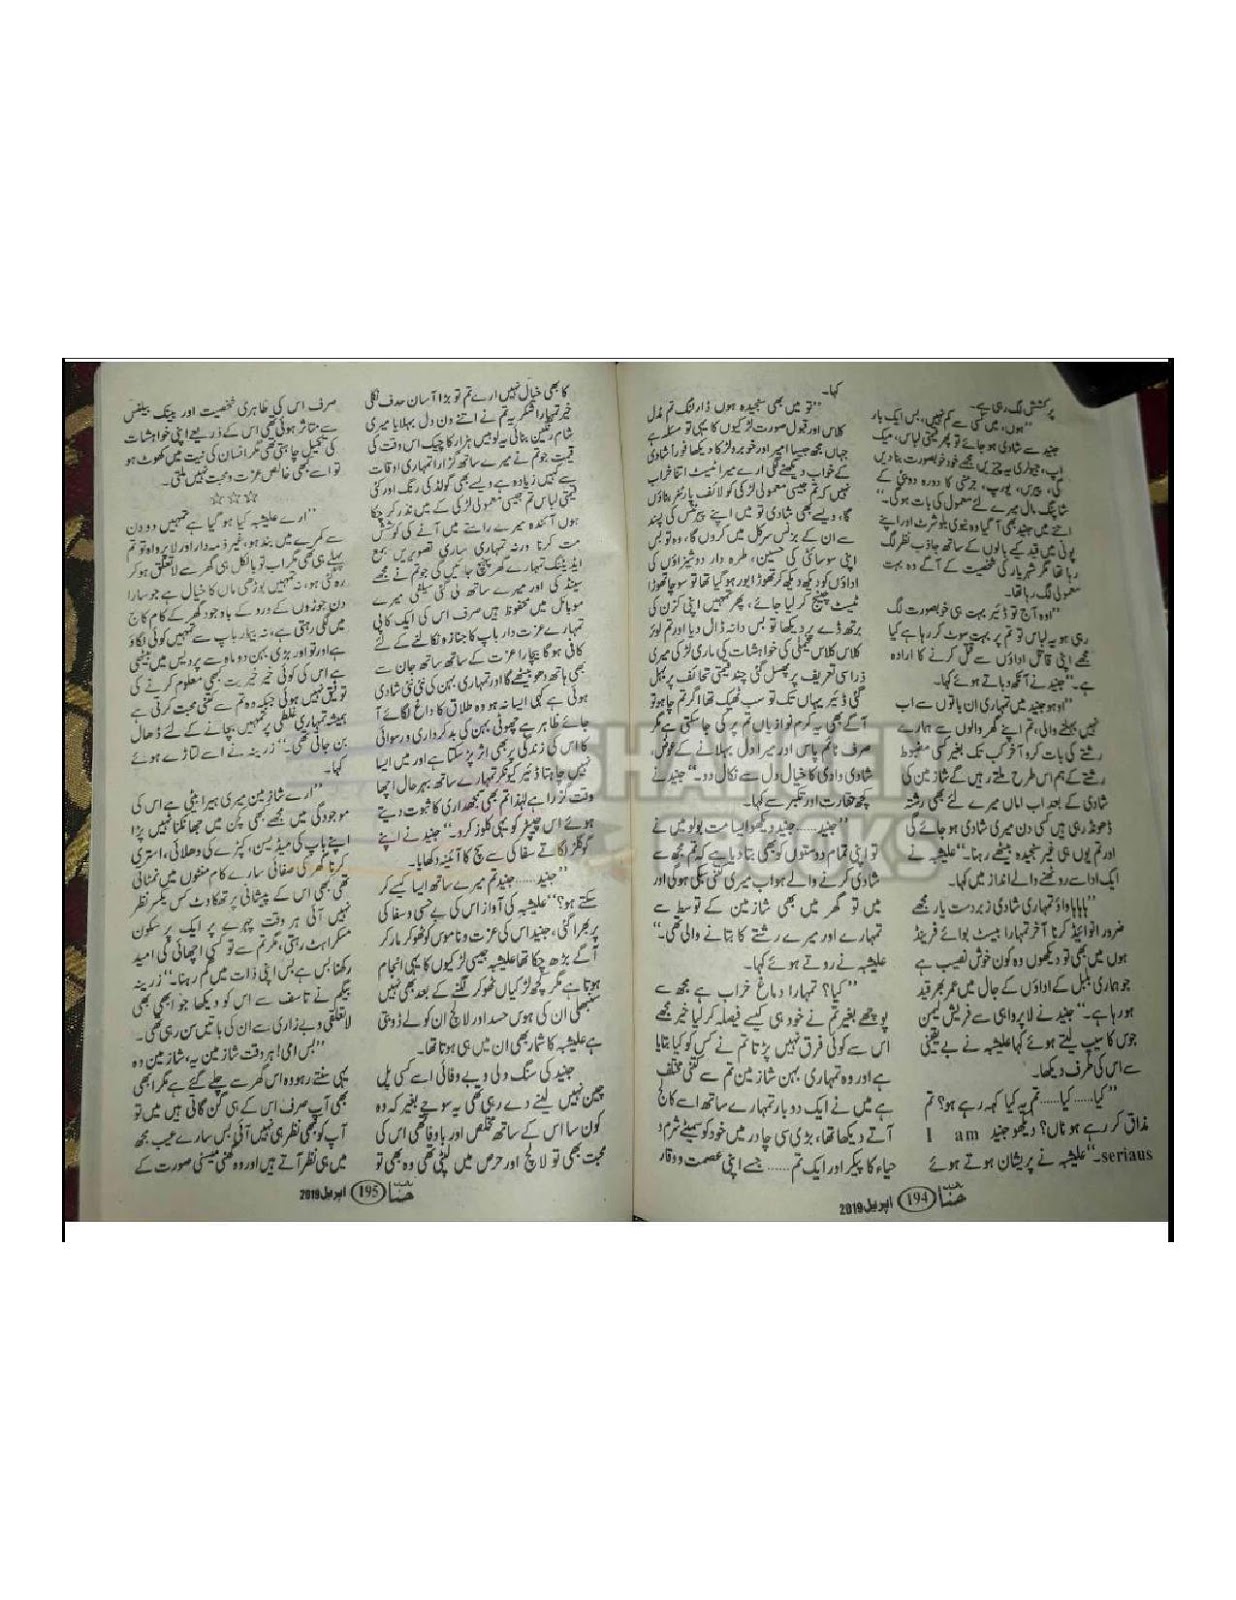 پرکشش لگ رہی ہے۔
”ہوں، میں کسی سے کم نہیں، بس ایک بار
جنید سے شادی ہو جائے تو پھر قیمتی لباس، میک
اپ، جیولری یہ چیزیں مجھے خود خوبصورت بنا دیں
گی، پیرس، یورپ، جرمنی کا دورہ دوبئی کے
شاپنگ مال میرے لئے معمول کی بات ہوگی۔“
اتنے میں جنید بھی آ گیا وہ نیوی بلو شرٹ اور اپنے
پونی میں قید کیے بالوں کے ساتھ جاذب نظر لگ
رہا تھا مگر شہریار کی شخصیت کے آگے وہ بہت
معمولی لگ رہا تھا۔
”اوہ آج تو ڈئیر بہت ہی خوبصورت لگ
رہی ہو یہ لباس تو تم پر بہت سوٹ کر رہا ہے کیا
مجھے اپنی قاتل اداؤں سے قتل کرنے کا ارادہ
ہے۔“ جنید نے آنکھ دباتے ہوئے کہا۔
”اوہو جنید میں تمہاری ان باتوں سے اب
نہیں بہلنے والی، تم اپنے گھر والوں سے ہمارے
رشتے کی بات کرو آخر کب تک بغیر کسی مضبوط
رشتے کے ہم اس طرح ملتے رہیں گے شازمین کی
شادی کے بعد اب اماں میرے لئے بھی رشتہ
ڈھونڈ رہی ہیں کسی دن میری شادی ہو جائے گی
اور تم یوں ہی غیر سنجیدہ بیٹھے رہنا۔“ علیشبہ نے
ایک ادا سے روٹھنے والے انداز میں کہا۔
”ہاہاہا واؤ تمہاری شادی زبردست یار مجھے
ضرور انوائیڈ کرنا آخر تمہارا بیسٹ بوائے فرینڈ
ہوں میں بھی تو دیکھوں وہ کون خوش نصیب ہے
جو ہماری بلبل کے اداؤں کے جال میں عمر بھر قید
ہو رہا ہے۔“ جنید نے لاپرواہی سے فریش لیمن
جوس کا سیپ لیتے ہوئے کہا علیشبہ نے بے یقینی
سے اس کی طرف دیکھا۔
”کیا...... کیا...... تم یہ کیا کہہ رہے ہو؟ تم
مذاق کر رہے ہو ناں؟ دیکھو جنید I am
seriaus۔“ علیشبہ نے پریشان ہوتے ہوئے
کہا۔
”تو میں بھی سنجیدہ ہوں ڈارلنگ تم مڈل
کلاس اور قبول صورت لڑکیوں کا یہی تو مسئلہ ہے
جہاں مجھ جیسا امیر اور خوبرو لڑکا دیکھا فوراً شادی
کے خواب دیکھنے لگی ارے میرا ٹیسٹ اتنا خراب
نہیں کہ تم جیسی معمولی لڑکی کو لائف پارٹنر بناؤں
گا، ویسے بھی شادی تو میں اپنے پیرنٹس کی پسند
سے ان کے بزنس سرکل میں کروں گا، وہ تو بس
اپنی سوسائٹی کی حسین، طرہ دار دوشیزاؤں کی
اداؤں کو دیکھ دیکھ کر تھوڑا بور ہو گیا تھا تو سوچا تھوڑا
ٹیسٹ چینج کر لیا جائے، پھر تمہیں اپنی کزن کی
برتھ ڈے پر دیکھا تو بس دانہ ڈال دیا اور تم لوئر
کلاس فیملی کی خواہشات کی ماری لڑکی میری
ذرا سی تعریف پر پھسل گئی چند قیمتی تحائف پر بہل
گئی ڈئیر یہاں تک تو سب ٹھیک تھا اگر تم چاہو تو
آگے بھی یہ کرم نوازیاں تم پر کی جا سکتی ہے مگر
صرف ٹائم پاس اور میرا دل بہلانے کے عوض،
شادی وادی کا خیال دل سے نکال دو۔“ جنید نے
کچھ حقارت اور تکبر سے کہا۔
”جنید...... جنید دیکھو ایسا مت بولو میں نے
تو اپنی تمام دوستوں کو بھی بتا دیا ہے کہ تم مجھ سے
شادی کرنے والے ہو اب میری کتنی سبکی ہوگی اور
میں تو گھر میں بھی شازمین کے توسط سے
تمہارے اور میرے رشتے کا بتانے والی تھی۔“
علیشبہ نے روتے ہوئے کہا۔
”کیا؟ تمہارا دماغ خراب ہے مجھ سے
پوچھے بغیر تم نے خود ہی کیسے فیصلہ کر لیا خیر مجھے
اس سے کوئی فرق نہیں پڑتا تم نے کس کو کیا بتایا
ہے اور وہ تمہاری بہن شازمین تم سے کتنی مختلف
ہے میں نے ایک دو بار تمہارے ساتھ اسے کالج
آتے دیکھا تھا، بڑی سی چادر میں خود کو سمیٹے شرم و
حیاء کا پیکر اور ایک تم...... جسے اپنی عصمت و وقار
حنا 194 اپریل 2019
کا بھی خیال نہیں ارے تم تو بڑا آسان حدف نکلی
خیر تمہارا شکریہ تم نے اتنے دن دل بہلایا میری
شام رنگین بنائی یہ لو بیس ہزار کا چیک اس وقت کی
قیمت جو تم نے میرے ساتھ گزارا تمہاری اوقات
سے کہیں زیادہ ہے ویسے بھی گولڈ کی رنگ اور کئی
قیمتی لباس تم جیسی معمولی لڑکی کے میں نذر کر چکا
ہوں آئندہ میرے راستے میں آنے کی کوشش
مت کرنا ورنہ تمہاری ساری تصویریں بمع
ایڈیٹنگ تمہارے گھر پہنچ جائیں گی جو تم نے مجھے
سینڈ کی اور میرے ساتھ لی گئی سیلفی میرے
موبائل میں محفوظ ہیں صرف اس کی ایک کاپی
تمہارے عزت دار باپ کا جنازہ نکالنے کے لئے
کافی ہوگا بیچارا عزت کے ساتھ ساتھ جان سے
بھی ہاتھ دھو بیٹھے گا اور تمہاری بہن کی نئی نئی شادی
ہوئی ہے کہی ایسا نہ ہو وہ طلاق کا داغ لگائے آ
جائے ظاہر ہے چھوٹی بہن کی بدکرداری و رسوائی
کا اس کی زندگی پر بھی اثر پڑ سکتا ہے اور میں ایسا
نہیں چاہتا ڈئیر کیونکر تمہارے ساتھ بہرحال اچھا
وقت گزرا ہے لہٰذا تم بھی سمجھداری کا ثبوت دیتے
ہوئے اس چیپٹر کو یہی کلوز کرو۔“ جنید نے اپنے
گوگلز لگاتے سفاکی سے سچ کا آئینہ دکھایا۔
”جنید...... جنید تم میرے ساتھ ایسا کیسے کر
سکتے ہو؟“ علیشبہ کی آواز اس کی بے حسی و سفاکی
پر بھرا گئی، جنید اس کی عزت و ناموس کو ٹھوکر مار کر
آگے بڑھ چکا تھا علیشبہ جیسی لڑکیوں کا یہی انجام
ہوتا ہے مگر کچھ لڑکیاں ٹھوکر لگنے کے بعد بھی نہیں
سنبھلی ان کی ہوس حسد اور لالچ ان کو لے ڈوبتی
ہے علیشبہ کا شمار بھی ان میں ہی ہوتا تھا۔
جنید کی سنگ دلی و بے وفائی اسے کسی پل
چین نہیں لینے دے رہی تھی یہ سوچے بغیر کہ وہ
کون سا اس کے ساتھ مخلص اور باوفا تھی اس کی
محبت بھی تو لالچ اور حرص میں لپٹی تھی وہ بھی تو
صرف اس کی ظاہری شخصیت اور بینک بیلنس
سے متاثر ہوئی تھی اس کے ذریعے اپنی خواہشات
کی تکمیل چاہتی تھی مگر انسان کی نیت میں کھوٹ ہو
تو اسے بھی خالص عزت و محبت نہیں ملتی۔
☆☆☆
”ارے علیشبہ کیا ہو گیا ہے تمہیں دو دن
سے کمرے میں بند ہو، غیر ذمہ دار اور لاپرواہ تو تم
پہلے ہی تھی مگر اب تو بالکل ہی گھر سے لاتعلق ہو کر
رہ گئی ہو، نہ تمہیں بوڑھی ماں کا خیال ہے جو سارا
دن جوڑوں کے درد کے باوجود گھر کے کام کاج
میں لگی رہتی ہے، نہ بیمار باپ سے تمہیں کوئی لگاؤ
ہے اور تو اور بڑی بہن دو ماہ سے پردیس میں بیٹھی
ہے اس کی کوئی خیر خیریت کبھی معلوم کرنے کی
توفیق نہیں ہوئی جبکہ وہ تم سے کتنی محبت کرتی ہے
ہمیشہ تمہاری غلطی پر تمہیں بچانے کے لئے ڈھال
بن جاتی تھی۔“ زرینہ نے اسے لتاڑے ہوئے
کہا۔
”ارے شازمین میری ہیرا بیٹی ہے اس کی
موجودگی میں مجھے بھی کچن میں جھانکنا نہیں پڑا
اپنے باپ کی میڈیسن، کپڑے کی دھلائی، استری
کرنا گھر کی صفائی سارے کام منٹوں میں نمٹاتی
تھی بھی اس کے پیشانی پر تھکاوٹ کس یکسر نظر
نہیں آئی ہر وقت چہرے پر ایک پر سکون
مسکراہٹ رہتی، مگر تم سے تو کسی اچھائی کی امید
رکھنا بس ہے بس اپنی ذات میں گم رہنا۔“ زرینہ
بیگم نے تاسف سے اس کو دیکھا جو ابھی بھی
لاتعلقی و بے زاری سے ان کی باتیں سن رہی تھی۔
”بس امی! ہر وقت شازمین یہ، شازمین وہ
یہی سنتے رہو وہ اس گھر سے چلے گئی ہے مگر ابھی
بھی آپ صرف اس کے ہی گن گاتی ہیں میں تو
آپ کو کبھی نظر ہی نہیں آئی بس سارے عیب مجھ
میں ہی نظر آتے ہیں اور وہ گھنی میسنی صورت کے
حنا 195 اپریل 2019
SHAHEEN
EBOOKS